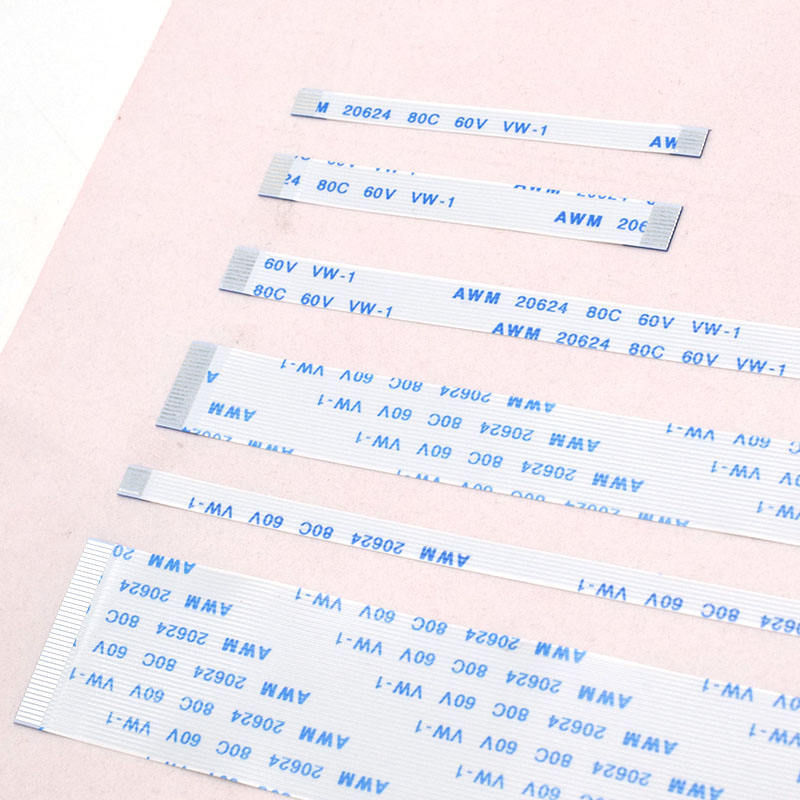 M 20624 80C 60V VW-1 AW
24 80C 60V VW-1 AWM 206
60V VW-1 AWM 20624 80C 60V VW-1
80C 60V VW-1 AWM 20624 80C 60V VW-1
AWM 20624 80C 60V VW-1
AWM 20624 80C 60V VW-1
AWM 20624 80C 60V VW-1
AWM
AWM 20624 80C 60V VW-1
80C 60V VW-1
AWM 20
AWM 20624
AWM 20624 80C
AWM 20624 80C 60V
AWM 20624 80C 60V VW-1
AWM 20624 80C 60V VW-1
AWM 20624 80C 60V VW-1
AWM 20624 80C 60V VW-1
AWM 20624 80C 60V VW-1
AWM 20624 80C 60V VW-1